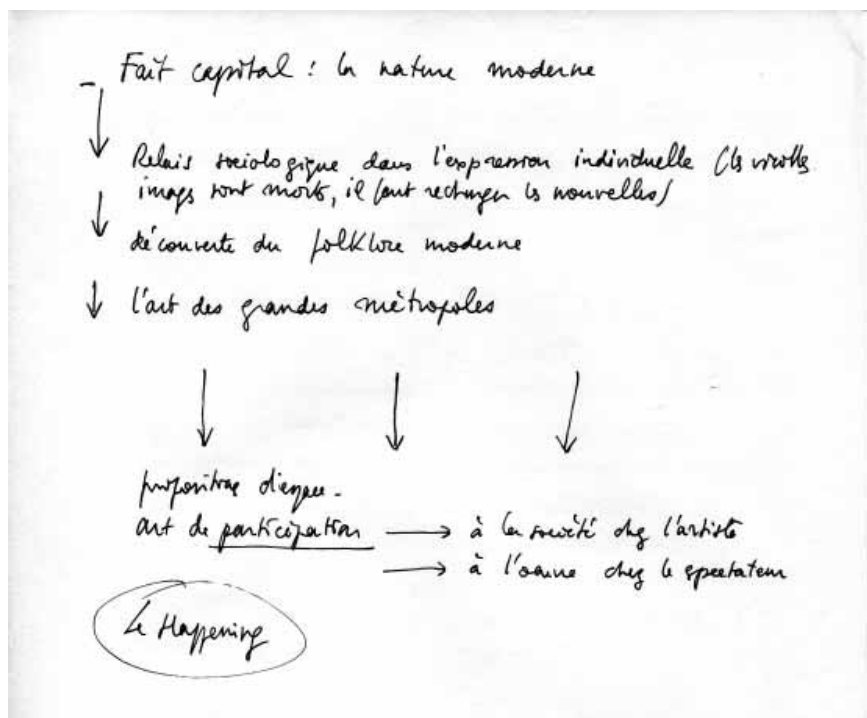 - Fait capital : la nature moderne
Relais sociologique dans l'expression individuelle (les vieilles
images sont mortes, il faut recharger les nouvelles)
découverte du folklore moderne
l'art des grandes métropoles
art de participation → à la société chez l'artiste
→ à l'œuvre chez le spectateur
Le Happening